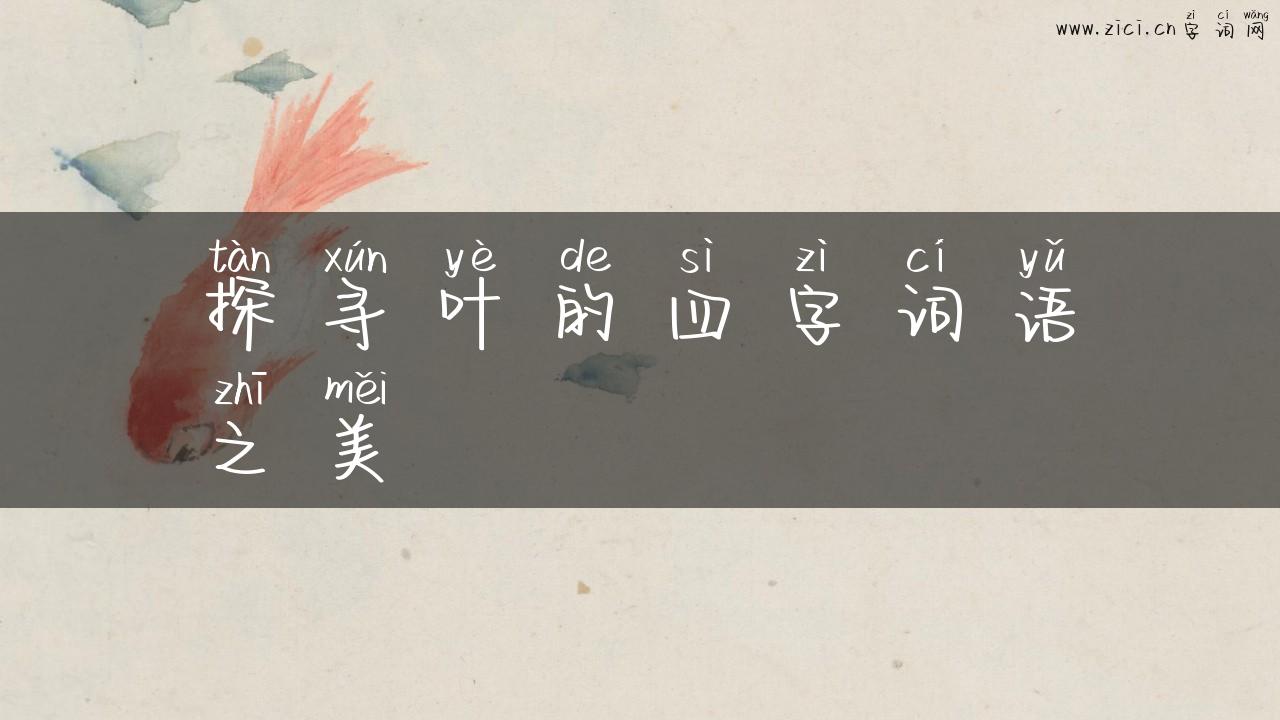 zì cí wǎng
www.zici.cn字词网
tàn xún yè de sì zì cí yǔ
探寻叶的四字词语
zhī měi
之美